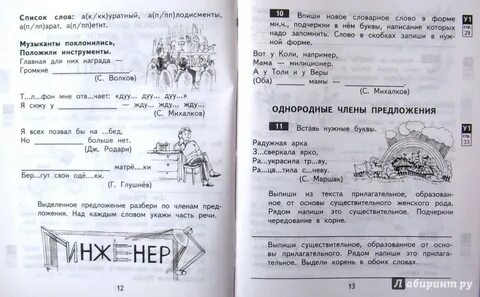 Список слов: а(к/кк)уратный, а(п/пп)лодисменты,
а(п/пп)арат, а(п/пп)етит.
Музыканты поклонились,
Положили инструменты.
Главная для них награда —
Громкие
(С. Волков)
Т...л...фон мне отв...чает: «ду... ду... ду...»
Я сижу у — жду... жду... жду...
(С. Михалков)
Я всех позвал бы на ...бед,
Но больше нет.
(Дж. Родари)
матрё...ки
Бер...гут свои одё...ки. (Г. Глушнёв)
Выделенное предложение разбери по членам пред-
ложения. Над каждым словом укажи часть речи.
ИНЖЕНЕР
12
10 Впиши новое словарное слово в форме
мн.ч., подчеркни в нём буквы, написание которых
надо запомнить. Слово в скобках запиши в нуж-
ной форме.
У1
стр.
29
Вот у Коли, например,
Мама — милиционер.
А у Толи и у Веры
(Оба) мамы —
(С. Михалков)
ОДНОРОДНЫЕ ЧЛЕНЫ ПРЕДЛОЖЕНИЯ
11 Вставь нужные буквы.
У1
стр.
33
Радужная арка
З...сверкала ярко,
Ра...украсила тр...ву,
Ра...цвела ст...кло.
(С. Маршак)
Выпиши из текста прилагательное, образован-
ное от основы существительного женского рода.
Рядом напиши это существительное. Подчеркни
чередование в корне.
Выпиши существительное, образованное от осно-
вы прилагательного. Рядом напиши это прилага-
тельное. Выдели корень в обоих словах.
13
Лабиринт.ру